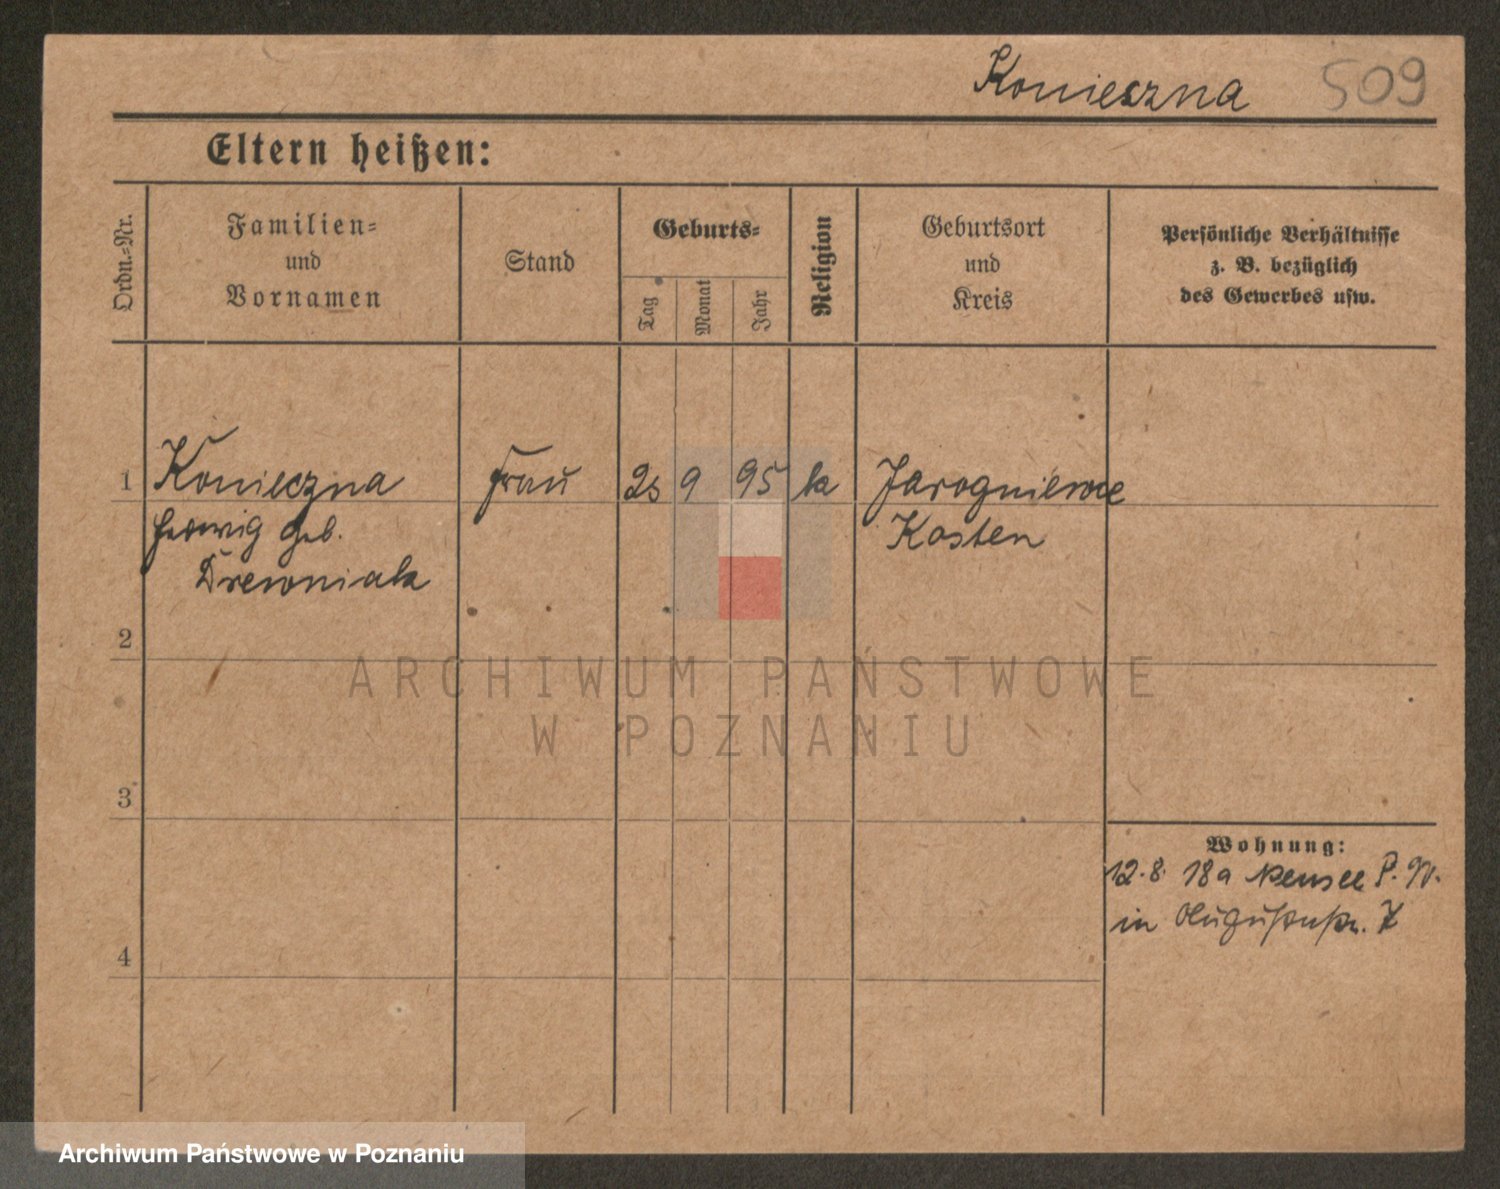 Konieczna 509
Eltern heißen:
Ordn.-Nr.
Familien-
und
Vornamen
Stand
Geburts-
Tag
Monat
Jahr
Religion
Geburtsort
und
Kreis
Persönliche Verhältnisse
z. B. bezüglich
des Gewerbes usw.
1 Konieczna Frau 9 95 k Jarogniewce
Hedwig geb. Kosten
Drewniak
2
ARCHIWUM PAŃSTWOWE
W POZNANIU
3
Wohnung:
12.8. 18a
in 7
4
Archiwum Państwowe w Poznaniu